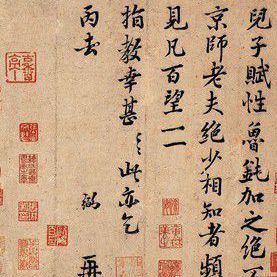 兒子賦性魯鈍加之絕
京師老夫絕少相知者頻
見凡百望一一
指教幸甚幸甚此亦乞
丙去
弼再